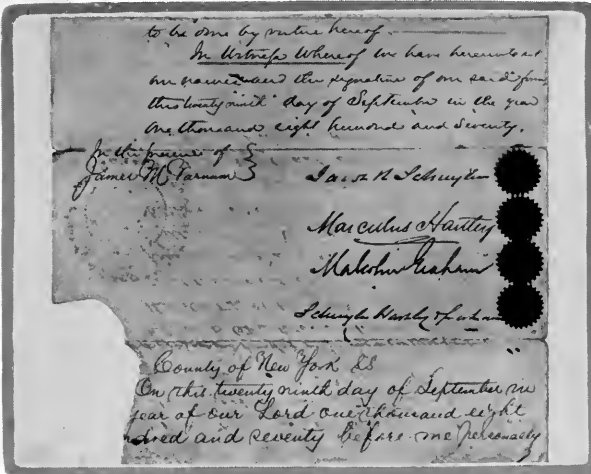 to be done by virtue hereof.
In Witness Whereof we have hereunto set
our names and the signature of our said firm
this twenty ninth day of September in the year
one thousand eight hundred and seventy.
In the presence of
James M. Varnum
Jacob R Schuyler
Marcellus Hartley
Malcolm Graham
Schuyler Hartley & Graham
County of New York SS
On this twenty ninth day of September in
year of our Lord one thousand eight
and seventy before me personally